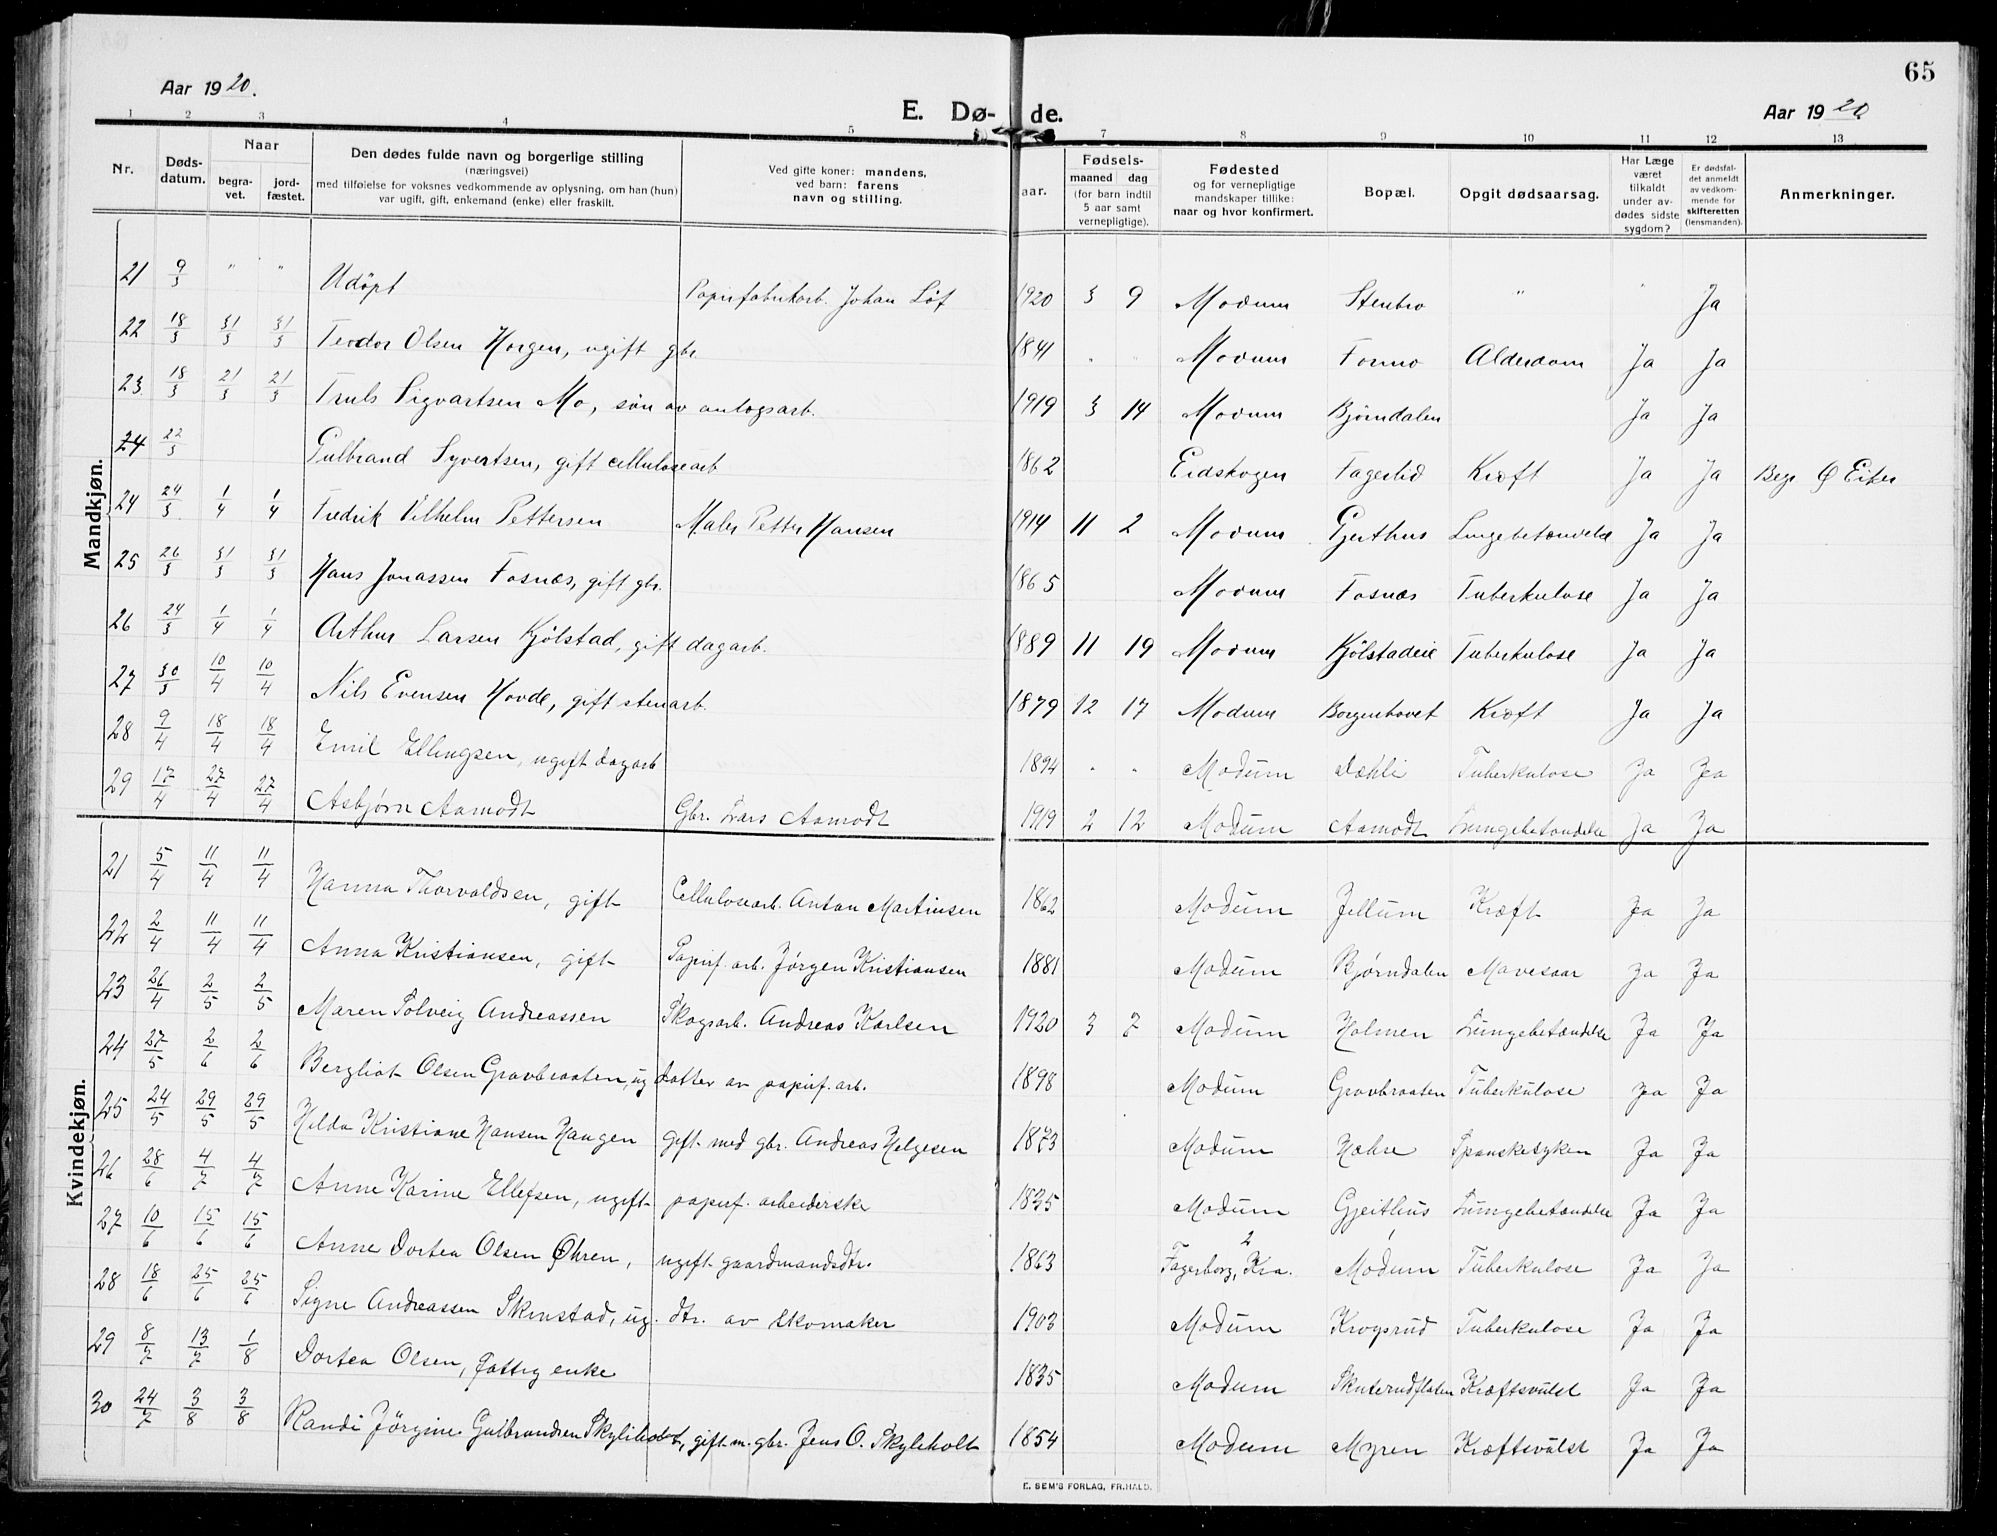 65
Aar 1920.
E. Døde.
Aar 1920
1 2 3 4 5 7 8 9 10 11 12 13
Nr.
Døds-
datum.
Naar
begra-
vet.
jord-
fæstet.
Den dødes fulde navn og borgerlige stilling
(næringsvei)
med tilføielse for voksnes vedkommende av oplysning, om han (hun)
var ugift, gift, enkemand (enke) eller fraskilt.
Ved gifte koner: mandens,
ved barn: farens
navn og stilling.
aar.
Fødsels-
maaned dag
(for barn indtil
5 aar samt
vernepligtige).
Fødested
og for vernepligtige
mandskaper tillike:
naar og hvor konfirmert.
Bopæl.
Opgit dødsaarsag.
Har Læge
været
tilkaldt
under av-
dødes sidste
sygdom?
Er dødsfal-
det anmeldt
av vedkom-
mende for
skifteretten
(lensmanden).
Anmerkninger.
Mandkjøn.
21 9/3 " " Udöpt Papirfabrikarb. Johan Löf 1920 3 9 Modum Stenbro " " Ja
22 18/3 31/3 31/3 Teodor Olsen Horgen, ugift gbr 1841 " " Modum Formo Alderdom Ja Ja
23 18/3 21/3 21/3 Truls Sigvartsen Mo, sön av anlægsarb. 1919 3 14 Modum Bjørndalen Ja Ja
24 22/3 Gulbrand Syvertsen, gift cellulosearb 1862 Eidskogen Fagerlid Kræft Ja Ja Begr Ø Eiker
24 24/3 1/4 1/4 Fredrik Vilhelm Pettersen Maler Petter Hansen 1914 11 2 Modum Gjerthus Lungebetændelse Ja Ja
25 26/3 31/3 31/3 Hans Jonassen Fosnæs, gift gbr. 1865 Modum Fosnæs Tuberkulose Ja Ja
26 24/3 1/4 1/4 Arthur Larsen Kjölstad, gift dagarb. 1889 11 19 Modum Kjölstadeie Tuberkulose Ja Ja
27 30/3 10/4 10/4 Nils Evensen Hovde, gift stenarb. 1879 12 17 Modum Borgenhovet Kræft Ja Ja
28 9/4 18/4 18/4 Emil Ellingsen, ugift dagarb 1894 " " Modum Dæhli Tuberkulose Ja Ja
29 17/4 27/4 27/4 Asbjørn Aamodt Gbr. Lars Aamodt 1919 2 12 Modum Aamodt Lungebetændelse Ja Ja
Kvindekjøn.
21 5/4 11/4 11/4 Hanna Thorvaldsen, gift Cellulosearb. Anton Martinsen 1862 Modum Jellum Kræft Ja Ja
22 2/4 11/4 11/4 Anna Kristiansen, gift Papirf. arb. Jörgen Kristiansen 1881 Modum Bjørndalen Mavesaar Ja Ja
23 26/4 2/5 2/5 Maren Solveig Andreassen Skogsarb. Andreas Karlsen 1920 3 7 Modum Holmen Lungebetændelse Ja Ja
24 27/5 2/6 2/6 Bergliot Olsen Gravbraaten, ug datter av papirf. arb. 1898 Modum Gravbraaten Tuberkulose Ja Ja
25 24/5 29/5 29/5 Hilda Kristiane Hansen Haugen gift med gbr. Andreas Helgesen 1873 Modum Hæhre Spanskesyken Ja Ja
26 28/6 4/7 4/7 Anne Karine Ellefsen, ugift papirf. arbeiderske 1835 Modum Gjeithus Lungebetændelse Ja Ja
27 10/6 15/6 15/6 Anne Dortea Olsen Øhren, ugift gaardmandsdtr. 1863 Fagerborg, Kra. 2 Modum 1 Tuberkulose Ja Ja
28 18/6 25/6 25/6 Signe Andreassen Skinstad, ug. dtr. av skomaker 1903 Modum Krogsrud Tuberkulose Ja Ja
29 8/7 13/7 1/8 Dortea Olsen, fattig enke 1835 Modum Skuterudflaten Kræftsvulst Ja Ja
30 24/7 3/8 3/8 Randi Jörgine Gulbrandsen Skyliholt, gift m. gbr. Jens O. Skyleholt 1854 Modum Myren Kræftsvulst Ja Ja
E. SEM'S FORLAG, FR.HALD.